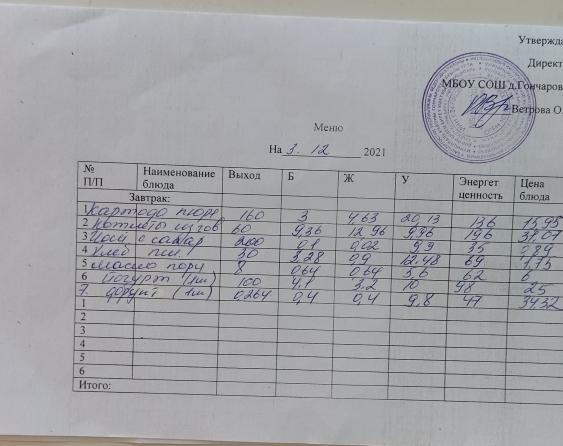 Утвержда
Директ
МБОУ СОШ д.Гончаров
Ветрова О.
Меню
На 3. 12 2021
№ П/П Наименование блюда Выход Б Ж У Энергет ценность Цена блюда
Завтрак:
1 картофе пюре 160 3 4,63 20,13 136 15,95
2 Котлеты из гов 60 9,36 12,96 9,96 196
3 Чай с сахар 200 0,1 0,02 9,9 35 1,89
4 Хлеб пш. 30 3,28 0,9 12,48 69 1,75
5 масло порц 8 0,64 0,64 5,6 62 6
6 йогурт (1шт) 100 4,1 3,2 10 98 25
7. фрукт (1шт) 0,264 0,4 0,4 9,8 47 34,32
1
2
3
4
5
6
Итого: